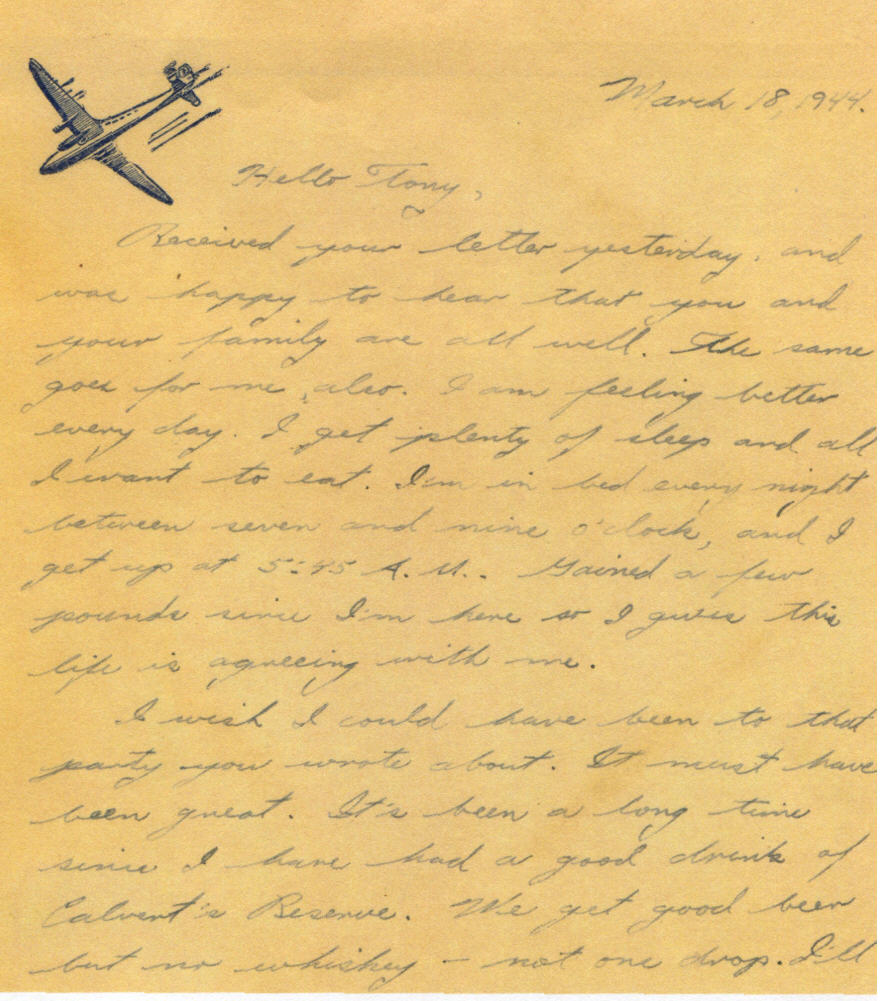 March 18, 1944.
Hello Tony,
Received your letter yesterday, and
was happy to hear that you and
your family are all well. The same
goes for me, also. I am feeling better
every day. I get plenty of sleep and all
I want to eat. I'm in bed every night
between seven and nine o'clock, and I
get up at 5:45 A.M.. Gained a few
pounds since I'm here so I guess this
life is agreeing with me.
I wish I could have been to that
party you wrote about. It must have
been great. It's been a long time
since I have had a good drink of
Calvert's Reserve. We get good beer
but no whiskey - not one drop. I'll